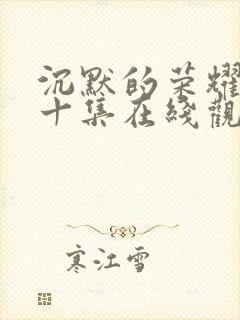 沉默的荣耀
十集在綫觀
寒江雪